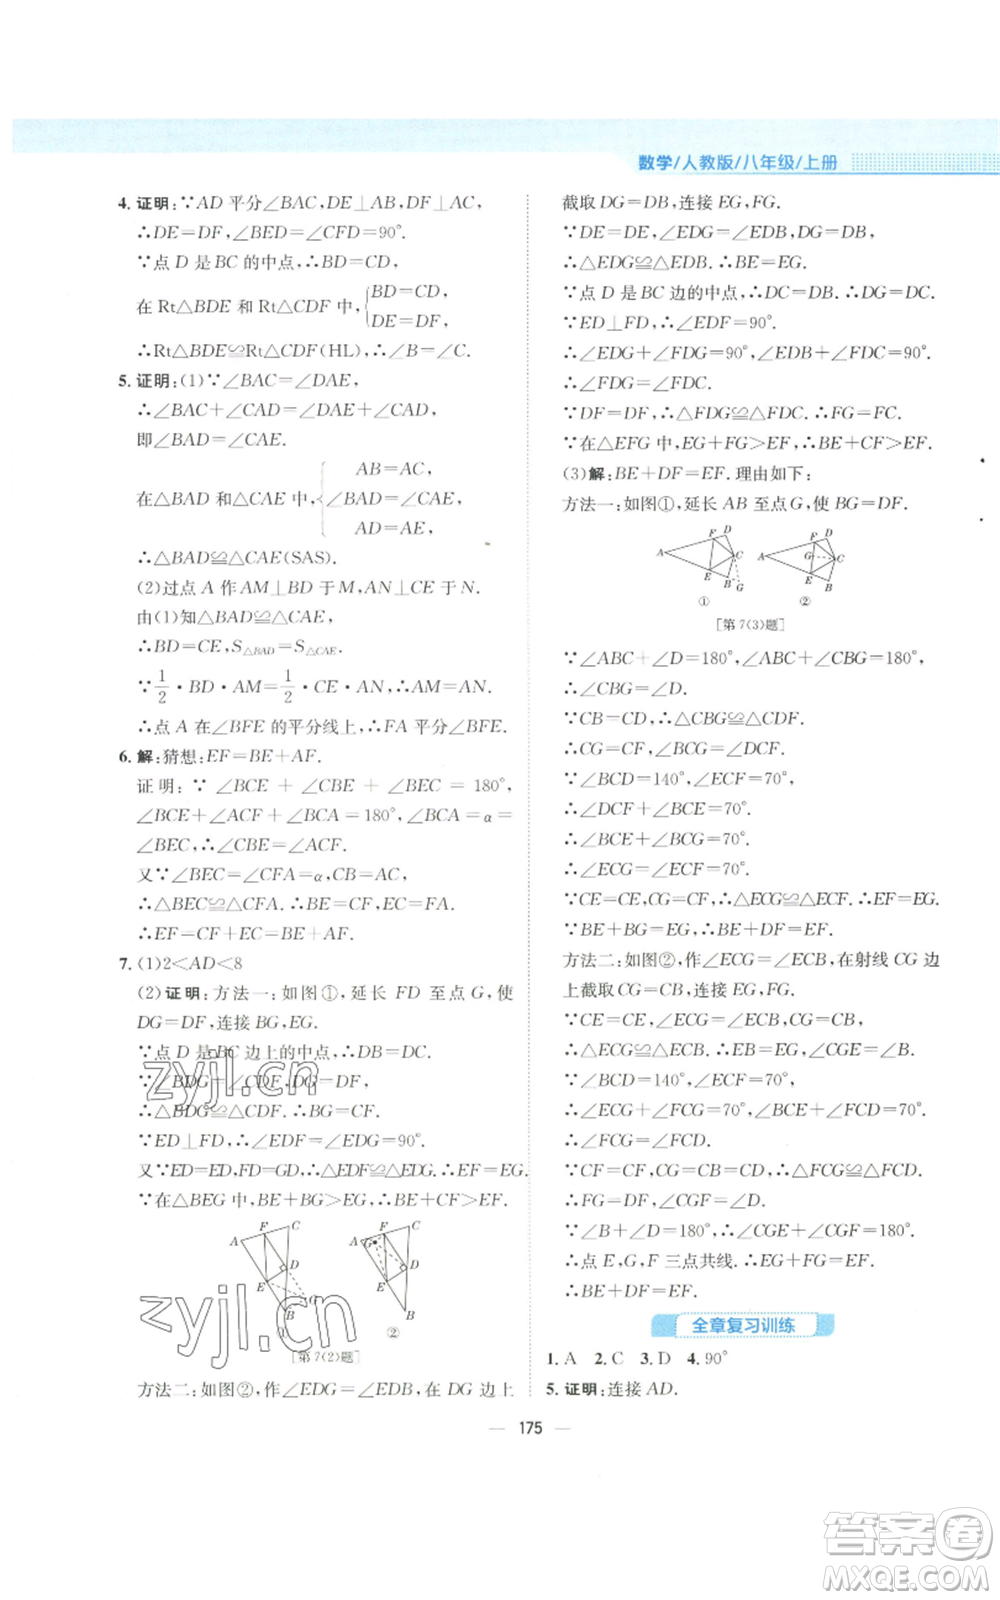 数学/人教版/八年级/上册
4. 证明:∵AD平分∠BAC,DE⊥AB,DF⊥AC,
∴DE=DF,∠BED=∠CFD=90°.
∵点D是BC的中点,∴BD=CD,
在Rt△BDE和Rt△CDF中,{BD=CD,
DE=DF,
∴Rt△BDE≌Rt△CDF(HL),∴∠B=∠C.
5. 证明:(1)∵∠BAC=∠DAE,
∴∠BAC+∠CAD=∠DAE+∠CAD,
即∠BAD=∠CAE.
AB=AC,
在△BAD和△CAE中,{∠BAD=∠CAE,
AD=AE,
∴△BAD≌△CAE(SAS).
(2)过点A作AM⊥BD于M,AN⊥CE于N.
由(1)知△BAD≌△CAE,
∴BD=CE,S△BAD=S△CAE.
∵1/2·BD·AM=1/2·CE·AN,∴AM=AN,
∴点A在∠BFE的平分线上,∴FA平分∠BFE.
6. 解:猜想:EF=BE+AF.
证明:∵∠BCE+∠CBE+∠BEC=180°,
∠BCE+∠ACF+∠BCA=180°,∠BCA=α=
∠BEC,∴∠CBE=∠ACF.
又∵∠BEC=∠CFA=α,CB=AC,
∴△BEC≌△CFA.∴BE=CF,EC=FA.
∴EF=CF+EC=BE+AF.
7. (1)2<AD<8
(2)证明:方法一:如图①,延长FD至点G,使
DG=DF,连接BG,EG.
∵点D是BC边上的中点,∴DB=DC.
∵∠BDG=∠CDF,DG=DF,
∴△BDG≌△CDF.∴BG=CF.
∵ED⊥FD,∴∠EDF=∠EDG=90°.
又∵ED=ED,FD=GD,∴△EDF≌△EDG.∴EF=EG.
∵在△BEG中,BE+BG>EG,∴BE+CF>EF.
A F C D E G B
①
A G F C D E B
②
[第7(2)题]
方法二:如图②,作∠EDG=∠EDB,在DG边上
截取DG=DB,连接EG,FG.
∵DE=DE,∠EDG=∠EDB,DG=DB,
∴△EDG≌△EDB.∴BE=EG.
∵点D是BC边的中点,∴DC=DB.∴DG=DC.
∵ED⊥FD,∴∠EDF=90°.
∴∠FDG+∠EDG=90°,∠EDB+∠FDC=90°.
∴∠FDG=∠FDC.
∵DF=DF,∴△FDG≌△FDC.∴FG=FC.
∵在△EFG中,EG+FG>EF,∴BE+CF>EF.
(3)解:BE+DF=EF.理由如下:
方法一:如图①,延长AB至点G,使BG=DF.
A F D C E B G
①
A F D G C E B
②
[第7(3)题]
∵∠ABC+∠D=180°,∠ABC+∠CBG=180°,
∴∠CBG=∠D.
∵CB=CD,∴△CBG≌△CDF.
∴CG=CF,∠BCG=∠DCF.
∵∠BCD=140°,∠ECF=70°,
∴∠DCF+∠BCE=70°.
∴∠BCE+∠BCG=70°.
∴∠ECG=∠ECF=70°.
∵CE=CE,CG=CF,∴△ECG≌△ECF.∴EG=EF.
∵BE+BG=EG,∴BE+DF=EF.
方法二:如图②,作∠ECG=∠ECB,在射线CG边
上截取CG=CB,连接EG,FG.
∵CE=CE,∠ECG=∠ECB,CG=CB,
∴△ECG≌△ECB.∴BE=EG,∠CGE=∠B.
∵∠BCD=140°,∠ECF=70°,
∴∠ECG+∠FCG=70°,∠BCE+∠DCF=70°.
∴∠FCG=∠FCD.
∵CF=CF,CG=CB=CD,∴△FCG≌△FCD.
∴FG=DF,∠CGF=∠D.
∵∠B+∠D=180°,∴∠CGE+∠CGF=180°.
∴点E,G,F三点共线.∴EG+FG=EF.
∴BE+DF=EF.
全章复习训练
1. A 2. C 3. D 4. 90°
5. 证明:连接AD.
175
zyjl.cn
zyjl.cn
答案卷
MXQE.COM